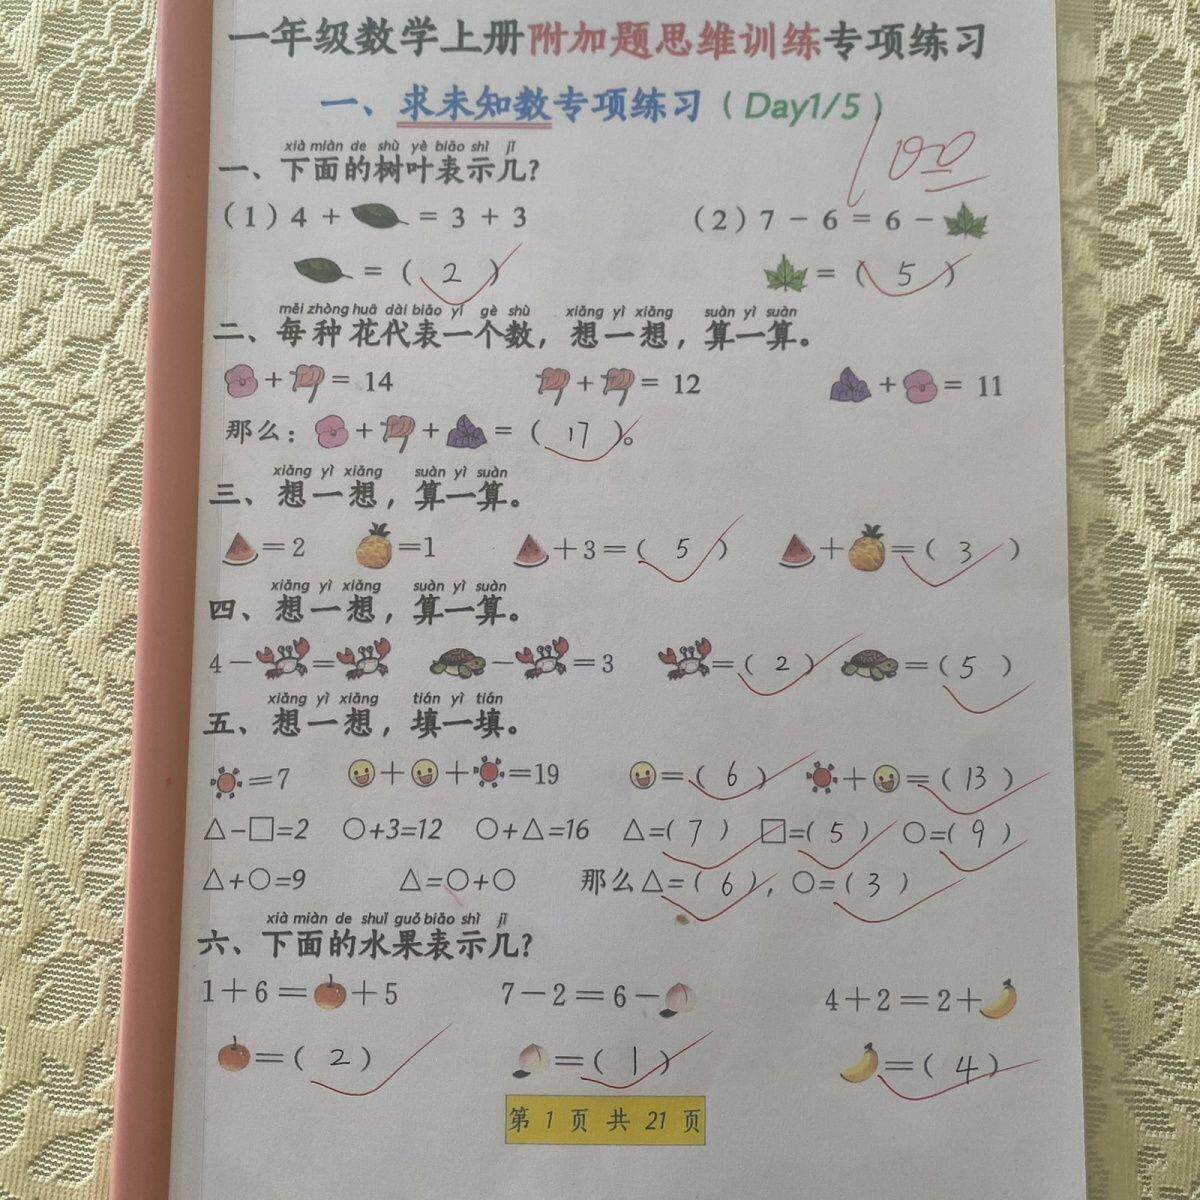 一年级数学上册附加题思维训练专项练习
一、求未知数专项练习（Day1/5）
100
xià miàn de shù yè biǎo shì jǐ
一、下面的树叶表示几?
（1）4 + = 3 + 3 （2）7 - 6 = 6 -
= （ 2 ） = （ 5 ）
měi zhòng huā dài biǎo yí gè shù xiǎng yì xiǎng suàn yì suàn
二、每种花代表一个数，想一想，算一算。
+ = 14 + = 12 + = 11
那么： + + = （ 17 ）。
xiǎng yì xiǎng suàn yì suàn
三、想一想，算一算。
=2 =1 +3=（ 5 ） + =（ 3 ）
xiǎng yì xiǎng suàn yì suàn
四、想一想，算一算。
4- = - =3 =（ 2 ） =（ 5 ）
xiǎng yì xiǎng tián yì tián
五、想一想，填一填。
=7 + + =19 =（ 6 ） + =（ 13 ）
△-□=2 ○+3=12 ○+△=16 △=( 7 ) □=( 5 ) ○=( 9 )
△+○=9 △=○+○ 那么△=（ 6 ），○=（ 3 ）
xià miàn de shuǐ guǒ biǎo shì jǐ
六、下面的水果表示几?
1+6= +5 7-2=6- 4+2=2+
=（ 2 ） =（ 1 ） =（ 4 ）
第 1 页 共 21 页